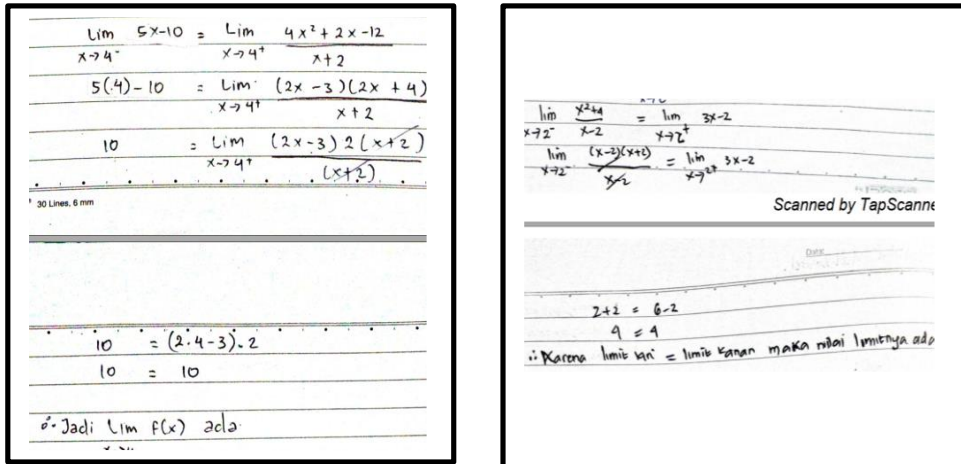 Lim 5x-10 = Lim 4x² + 2x - 12
x→4⁻ x→4⁺ x+2
5(4) - 10 = Lim (2x - 3)(2x + 4)
x→4⁺ x + 2
10 = Lim (2x-3) 2(x+2)
x→4⁺ (x+2)
30 Lines, 6 mm
10 = (2.4-3).2
10 = 10
∴ Jadi Lim f(x) ada
lim x²+4 = lim 3x-2
x→2⁻ x-2 x→2⁺
lim (x-2)(x+2) = lim 3x-2
x→2⁻ x-2 x→2⁺
Scanned by TapScanne
Date
2+2 = 6-2
4 = 4
∴ Karena limit kiri = limit kanan maka nilai limitnya ada